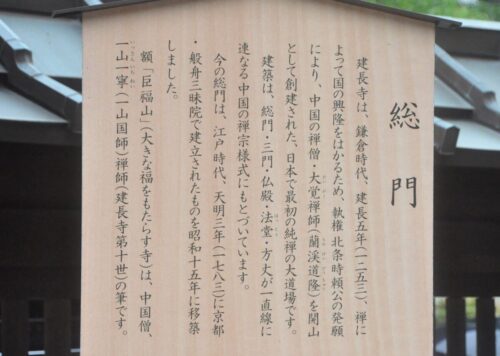 総門
建長寺は、鎌倉時代、建長五年(一二五三)、禅に
よって国の興隆をはかるため、執権 北条時頼公の発願
により、中国の禅僧・大覚禅師(蘭渓道隆)を開山
として創建された、日本で最初の純禅の大道場です。
建築は、総門・三門・仏殿・法堂・方丈が一直線に
連なる中国の禅宗様式にもとづいています。
今の総門は、江戸時代、天明三年(一七八三)に京都
・般舟三昧院で建立されたものを昭和十五年に移築
しました。
額「巨福山」(大きな福をもたらす寺)は、中国僧、
一山一寧(一山国師)禅師(建長寺第十世)の筆です。